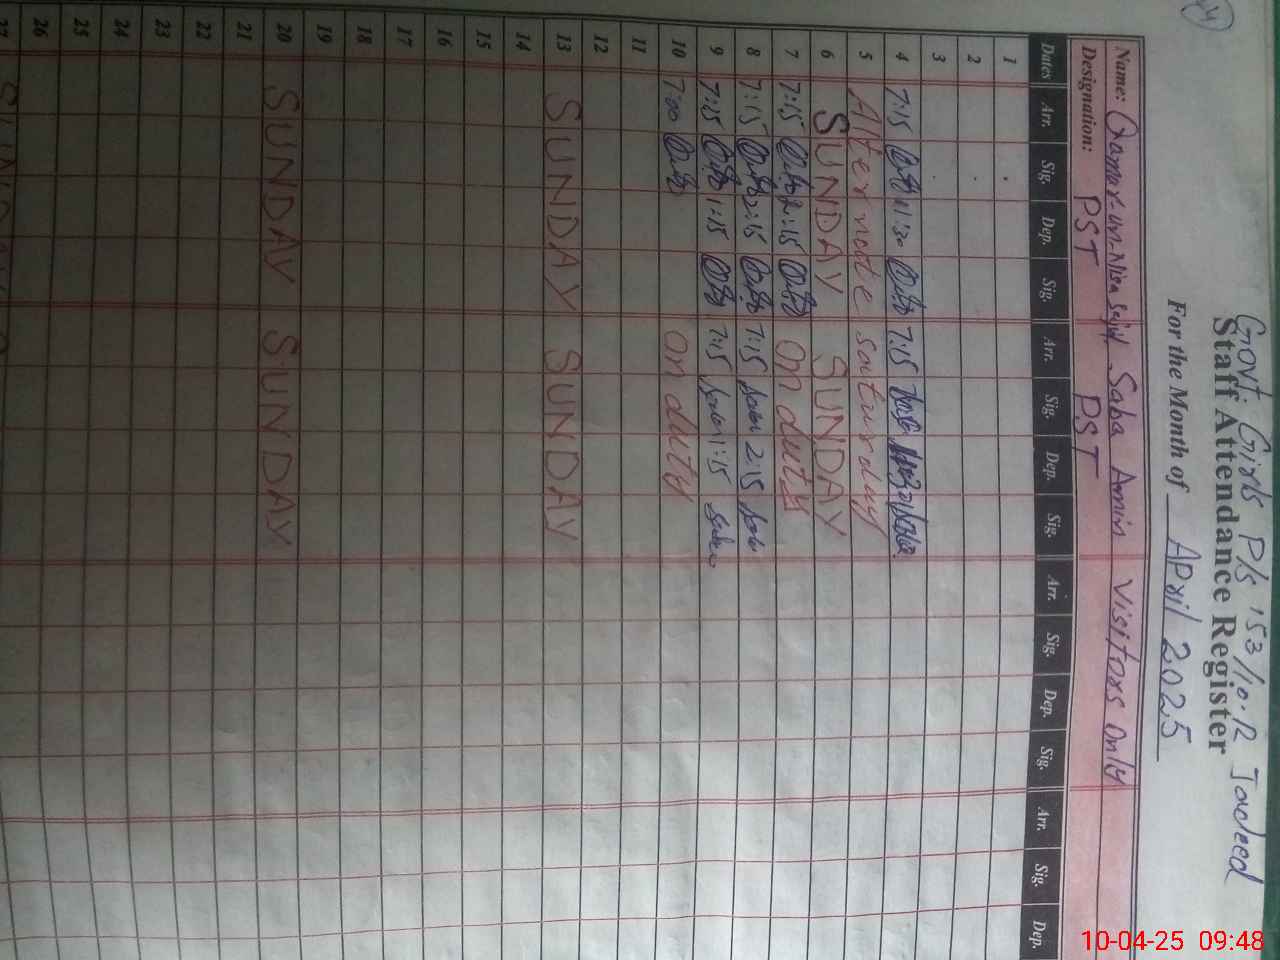 Govt Girls P/S 153/10.R Jadeed
Staff Attendance Register
For the Month of April 2025
Name: Qamar-un-Nisa Saba Amin Visitors Only
Designation: PST PST
Dates Arr. Sig. Dep. Sig. Arr. Sig. Dep. Sig. Arr. Sig. Dep. Sig. Arr. Sig. Dep.
1
2
3
4 7:15 11:30 7:15
5 Alternate saturday
6 SUNDAY SUNDAY
7 7:15 2:15 On duty
8 7:15 2:15 7:15 Saba 2:15 Saba
9 7:15 1:15 7:15 Saba 1:15 Saba
10 7:00 On duty
11
12
13 SUNDAY SUNDAY
14
15
16
17
18
19
20 SUNDAY SUNDAY
21
22
23
24
25
26
27
10-04-25 09:48